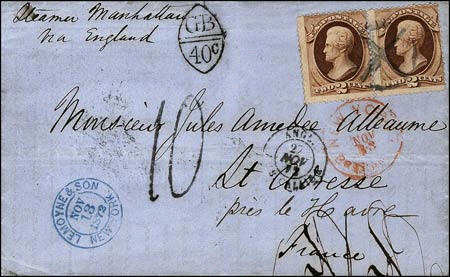 Steamer Manhattan
via England
GB
40c
TWO CENTS
TWO CENTS
Monsieur Jules Amedee Alleaume
10
ANGL.
NOV
NEW
NOV
LEMOYNE & SON
NOV
13
1872
NEW YORK
St Adresse
près le Havre
France